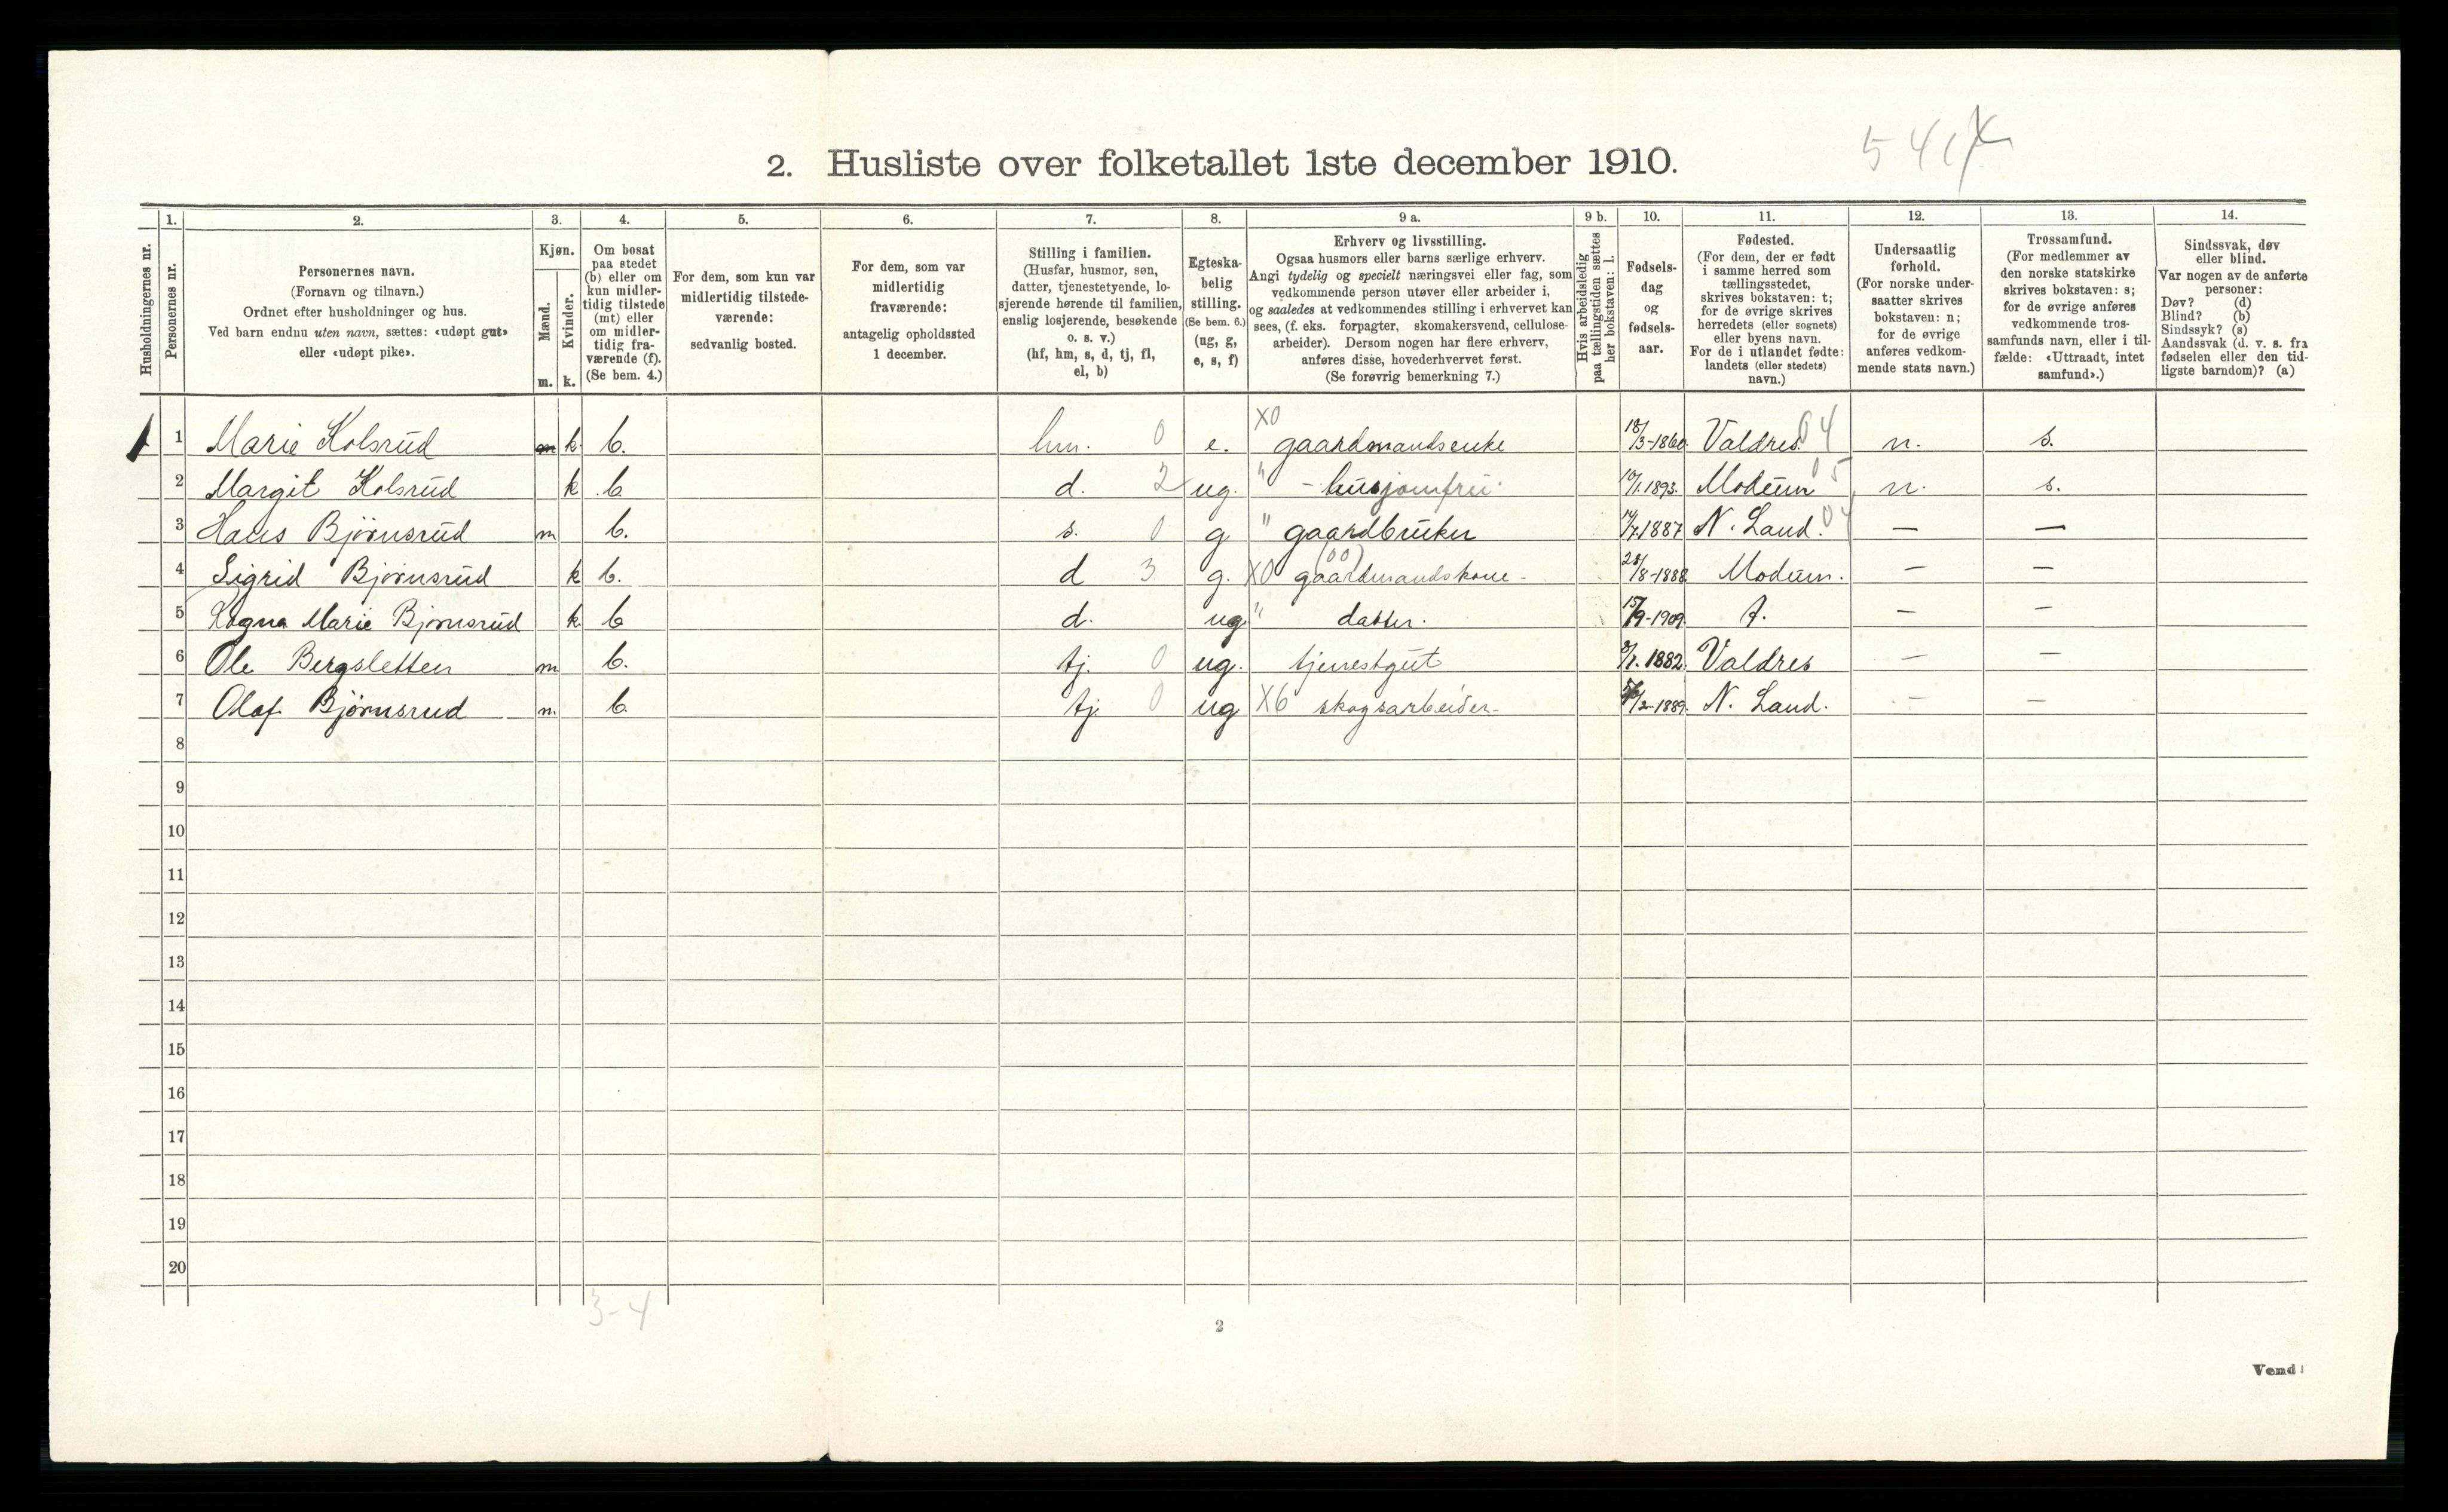 5 4 1
2. Husliste over folketallet 1ste december 1910.
Husholdningernes nr.
1. Personernes nr.
2. Personernes navn.
(Fornavn og tilnavn.)
Ordnet efter husholdninger og hus.
Ved barn endnu uten navn, sættes: «udøpt gut»
eller «udøpt pike».
3. Kjøn.
Mænd. m.
Kvinder. k.
4. Om bosat
paa stedet
(b) eller om
kun midler-
tidig tilstede
(mt) eller
om midler-
tidig fra-
værende (f).
(Se bem. 4.)
5. For dem, som kun var
midlertidig tilstede-
værende:
sedvanlig bosted.
6. For dem, som var
midlertidig
fraværende:
antagelig opholdssted
1 december.
7. Stilling i familien.
(Husfar, husmor, søn,
datter, tjenestetyende, lo-
sjerende hørende til familien,
enslig losjerende, besøkende
o. s. v.)
(hf, hm, s, d, tj, fl,
el, b)
8. Egteska-
belig
stilling.
(Se bem. 6.)
(ug, g,
e, s, f)
9 a. Erhverv og livsstilling.
Ogsaa husmors eller barns særlige erhverv.
Angi tydelig og specielt næringsvei eller fag, som
vedkommende person utøver eller arbeider i,
og saaledes at vedkommendes stilling i erhvervet kan
sees, (f. eks. forpagter, skomakersvend, cellulose-
arbeider). Dersom nogen har flere erhverv,
anføres disse, hovederhvervet først.
(Se forøvrig bemerkning 7.)
9 b. Hvis arbeidsledig
paa tællingstiden sættes
her bokstaven: l.
10. Fødsels-
dag
og
fødsels-
aar.
11. Fødested.
(For dem, der er født
i samme herred som
tællingsstedet,
skrives bokstaven: t;
for de øvrige skrives
herredets (eller sognets)
eller byens navn.
For de i utlandet fødte:
landets (eller stedets)
navn.)
12. Undersaatlig
forhold.
(For norske under-
saatter skrives
bokstaven: n;
for de øvrige
anføres vedkom-
mende stats navn.)
13. Trossamfund.
(For medlemmer av
den norske statskirke
skrives bokstaven: s;
for de øvrige anføres
vedkommende tros-
samfunds navn, eller i til-
fælde: «Uttraadt, intet
samfund».)
14. Sindssvak, døv
eller blind.
Var nogen av de anførte
personer:
Døv? (d)
Blind? (b)
Sindssyk? (s)
Aandssvak (d. v. s. fra
fødselen eller den tid-
ligste barndom)? (a)
1 1 Marie Kolsrud k b. hm. 0 e. X0 gaardmandsenke 18/3-1860 Valdres. 04 n. s.
2 Margit Kolsrud k b d. 2 ug. " - husjomfru 10/1.1893. Modum 05 n. s.
3 Hans Bjørnsrud m b. s. 0 g " gaardbruker 7.1887 N. Land. 04 — —
4 Sigrid Bjørnsrud k b. d 3 g. X0 gaardmandskone - (00) 28/8-1888. Modum. — —
5 Marie Bjørnsrud k b d. ug " datter. 15/9-1909. t. — —
6 Ole Bergsletten m b. tj. 0 ug. tjenestgut 1882. Valdres — —
7 Olaf Bjørnsrud m. b. tj. 0 ug X6 skogsarbeider- /2-1889. N. Land. — —
8
9
10
11
12
13
14
15
16
17
18
19
20
3-4
2
Vend!